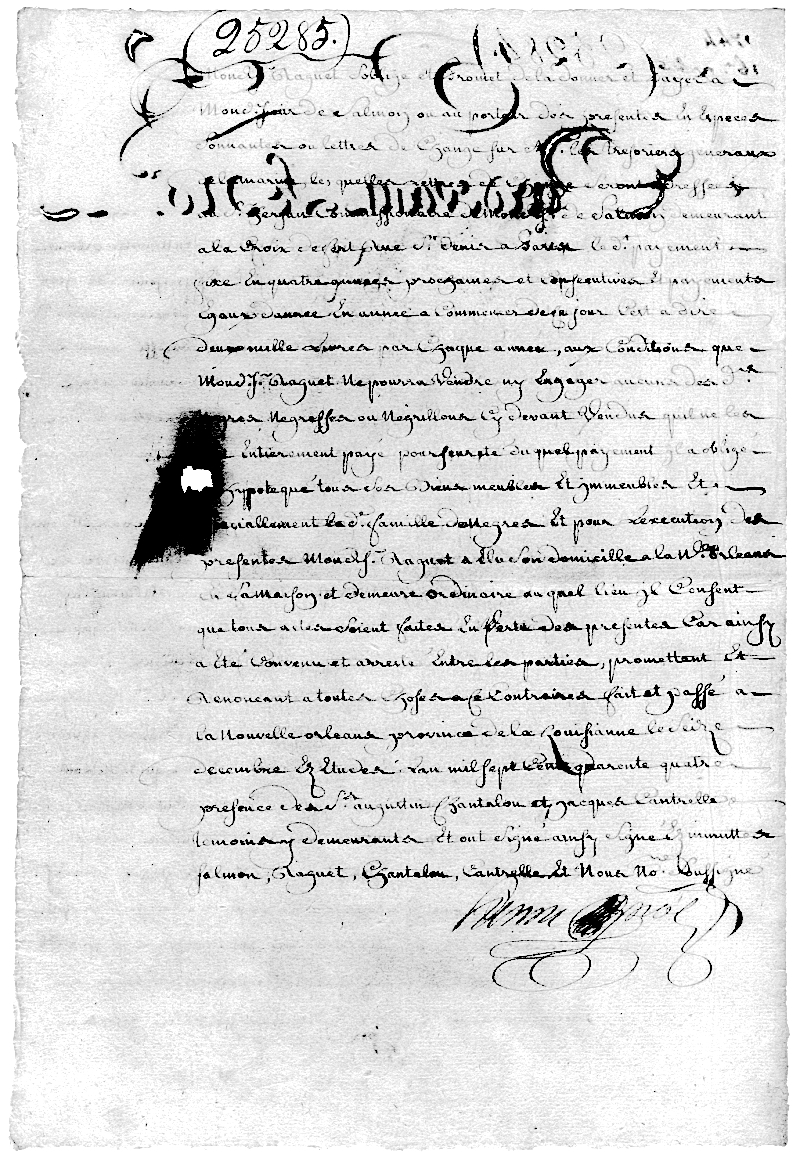 (25285.)
Mond. Sr. Raguet soblige et Promet de la donner et payer a
Mond. Sieur de Salmon ou au porteur des presentes en Especes
Sonnantes ou lettres de Change sur Mrs. les Tresoriers generaux
de la marine, les quelles lettres de Change Seront adressees
au Sr. Commissionaire de Mond. Sr. de Salmon demeurant
a la Croix de fert Rue St. Denis a Paris le dt. payement
fixé En quatre années prochaines et Consecutives Et payements
Egaux d'année En année a Commencer de ce jour C'est a dire
deux mille Livres par Chaque année, aux Conditions que
Mond. Sr. Raguet Ne pourra Vendre ny Engager aucuns des dts.
Negres Negresses ou Negrillons Cy devant Vendus quil ne les
Entierement payé pour seureté du quel payement jl a obligé
hypotequé tous ses Biens meubles Et jmmeubles Et
speciallement la de. famille de Negres Et pour Lexecution des
presentes Mond. Sr. Raguet a Elu Son domicille a la Nlle. Orleans
En sa Maison et demeure ordinaire au quel lieu jl Consent
que tous actes Soient faites En Vertu des presentes Car ainsy
a Eté Convenu et arresté Entre les parties, promettant Et
Renonceant a toutes Choses a Ce Contraires fait et passé a
la Nouvelle orleans province de la Louisianne le Seize
decembre Ez Etudes. Lan mil sept Cent quarente quatre
presence des Srs. augustin Chantalou et jacques Cantrelle
temoins y demeurants Et ont Signé ainsy Signé Ez minuttes
Salmon, Raguet, Chantalou, Cantrelle Et Nous Nore. Sussigné
Henry